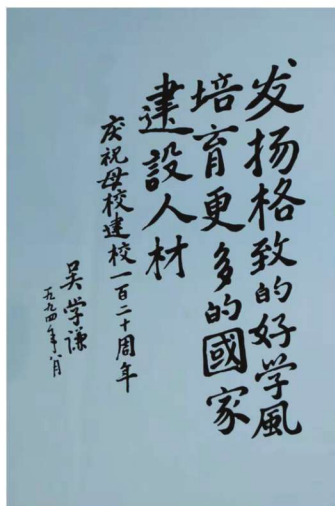 发扬格致的好学風
培育更多的國家
建設人材
庆祝母校建校一百二十周年
吴学谦
一九九四年八月